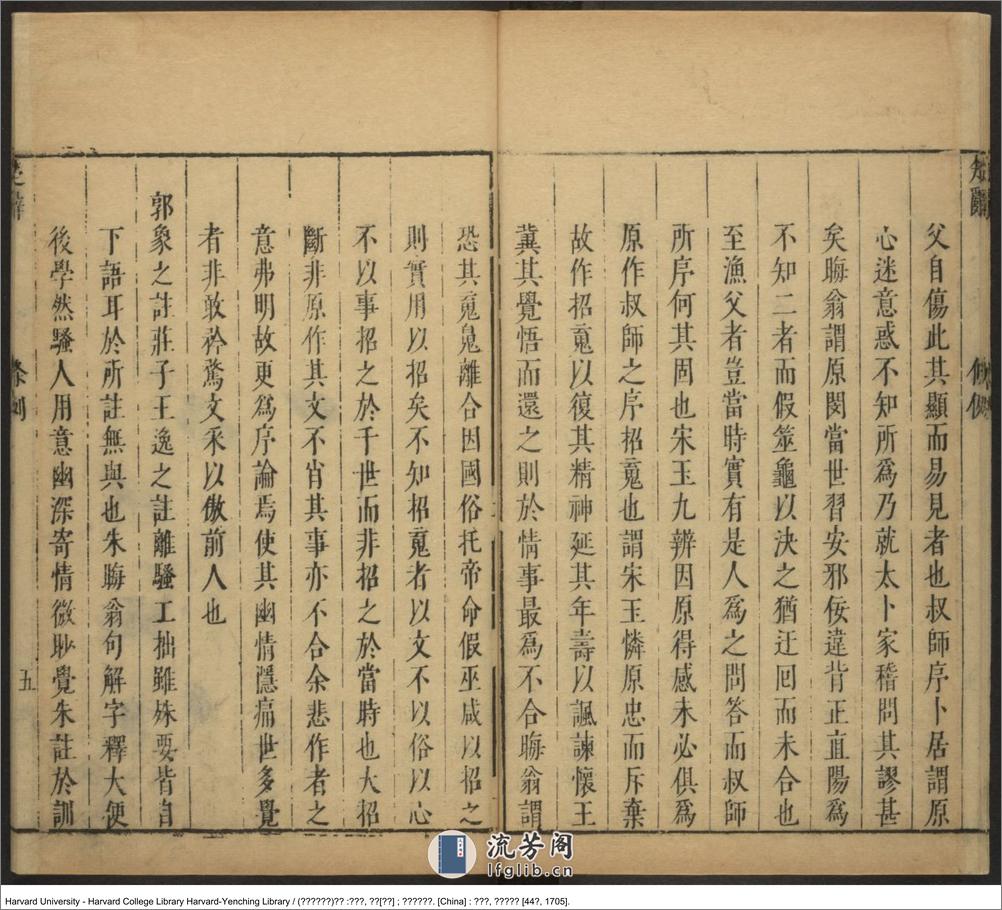 父自傷此其顯而易見者也叔師序卜居謂原
心迷意惑不知所為乃就太卜家稽問其謬甚
矣晦翁謂原閔當世習安邪佞違背正直陽為
不知二者而假筮龜以決之猶迂囘而未合也
至漁父者豈當時實有是人為之問答而叔師
所序何其固也宋玉九辨因原得感未必俱為
原作叔師之序招䰟也謂宋玉憐原忠而斥棄
故作招䰟以復其精神延其年壽以諷諫懷王
冀其覺悟而還之則於情事最為不合晦翁謂
恐其䰟鬼離合因國俗托帝命假巫咸以招之
則實用以招矣不知招䰟者以文不以俗以心
不以事招之於千世而非招之於當時也大招
斷非原作其文不肖其事亦不合余悲作者之
意弗明故更為序論焉使其幽情隱痛世多覺
者非敢矜騖文采以傲前人也
郭象之註莊子王逸之註離騷工拙雖殊要皆自
下語耳於所註無與也朱晦翁句解字釋大便
後學然騷人用意幽深寄情微眇覺朱註於訓
條例
五
流芳阁
lfglib.cn
Harvard University - Harvard College Library Harvard-Yenching Library / (??????)?? :???, ??[??] ; ??????. [China] : ???, ????? [44?, 1705].